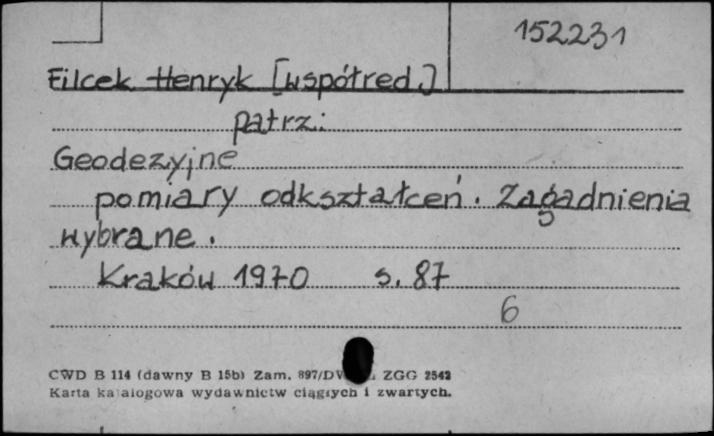 152231
Filcek Henryk [współred.]
patrz:
Geodezyjne
pomiary odkształceń. Zagadnienia
wybrane.
Kraków 1970 s. 87
6
CWD B 114 (dawny B 15b) Zam. 897/DW ZGG 2542
Karta katalogowa wydawnictw ciągłych i zwartych.